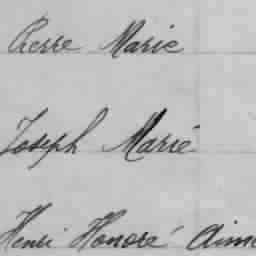 Pierre Marie
Joseph Marie
Henri Honoré Aimé